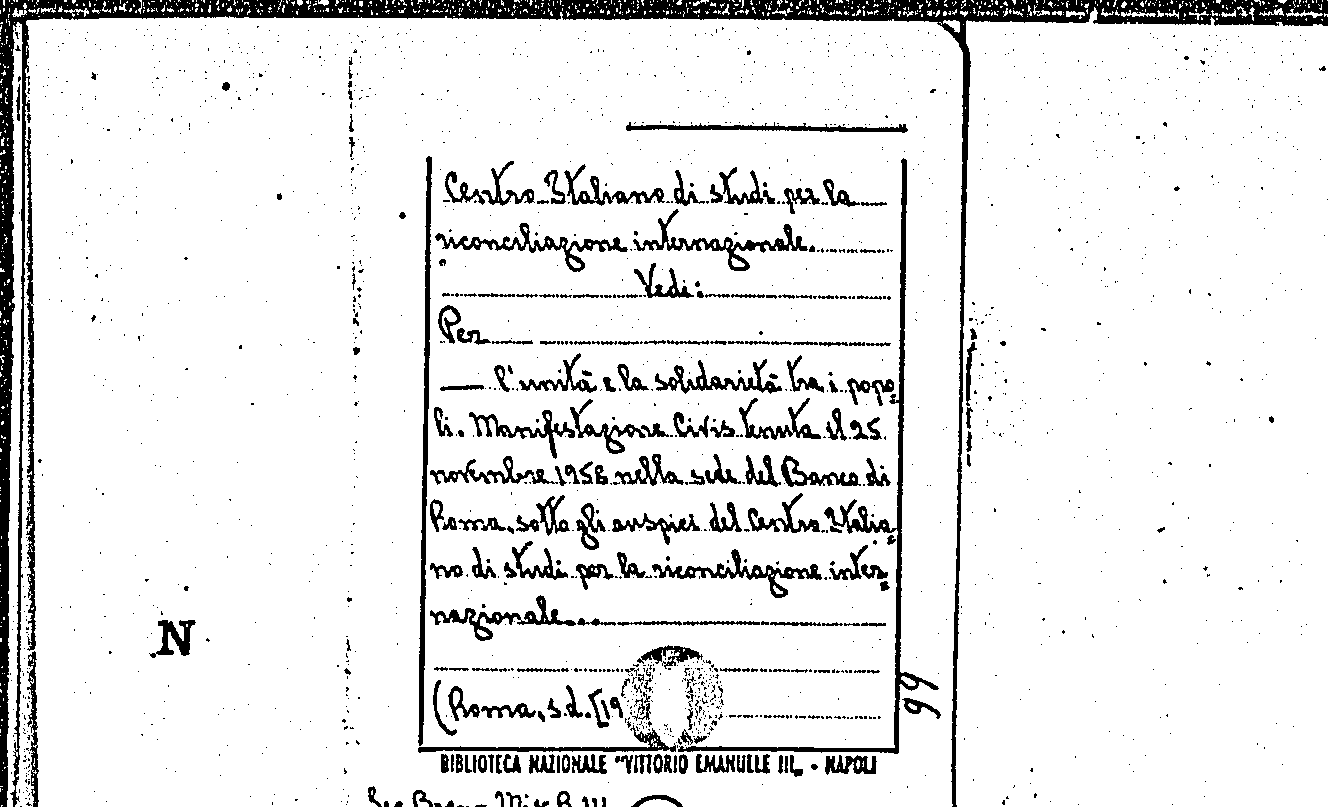 Centro Italiano di studi per la
riconciliazione internazionale.
Vedi:
Per
— l'unità e la solidarietà tra i popo=
li. Manifestazione Civis tenuta il 25
novembre 1956 nella sede del Banco di
Roma, sotto gli auspici del Centro Italia=
no di studi per la riconciliazione inter=
nazionale...
(Roma, s.d. [19
99
N
BIBLIOTECA NAZIONALE "VITTORIO EMANUELE III„ - NAPOLI